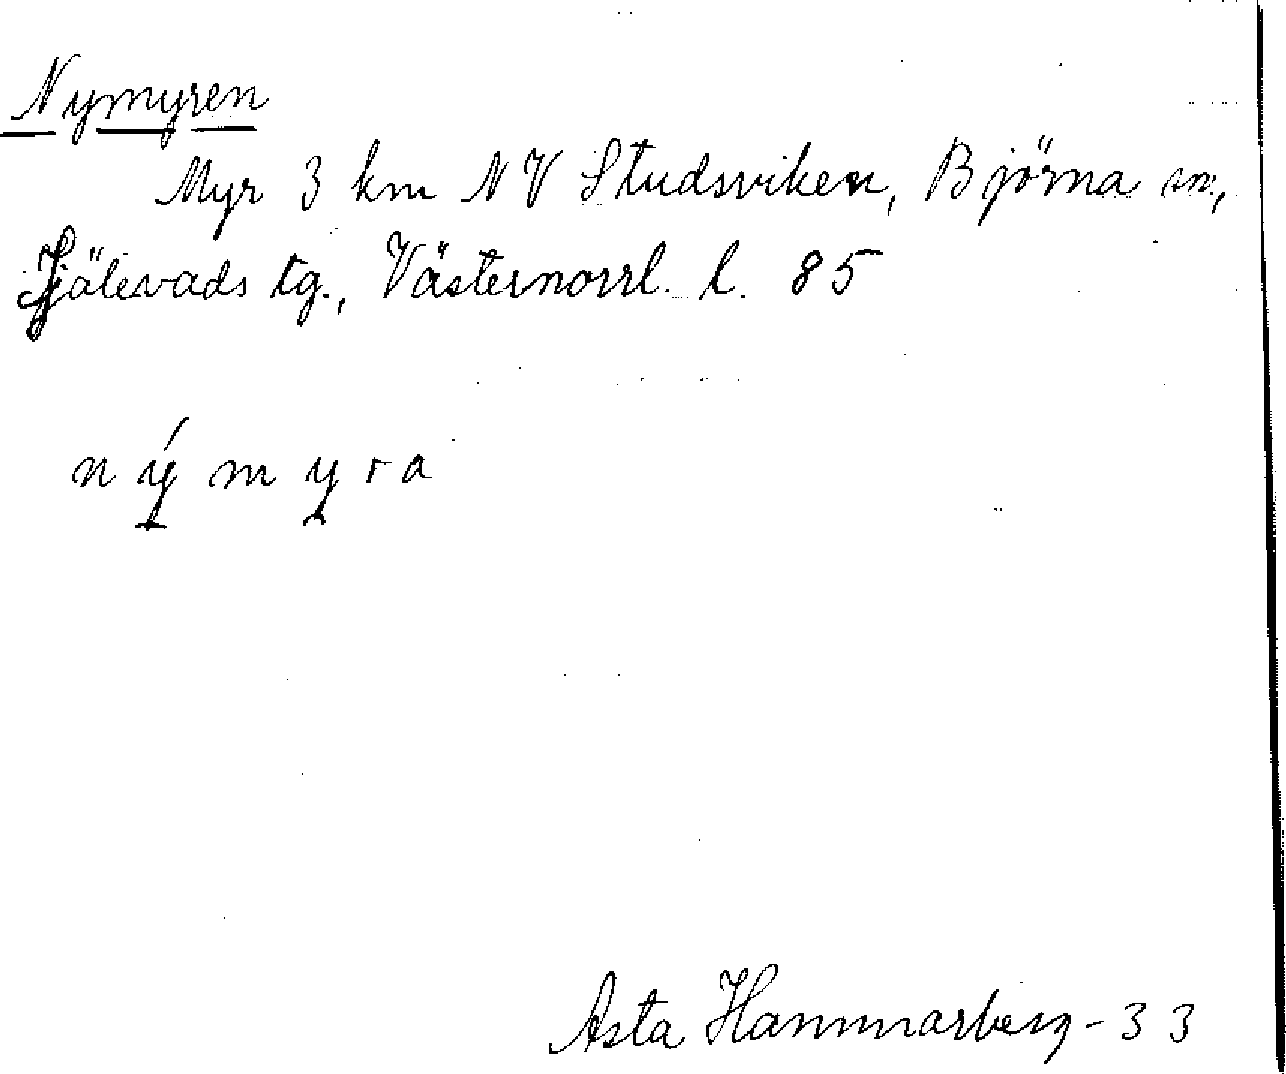 Nymyren
Myr 3 km NV Studsviken, Björna sn.,
Själevads tg., Västernorrl. l. 85
nýmyra
Asta Hammarberg - 33